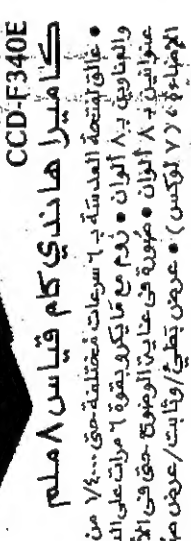 CCD-F340E
كاميرا هاندي كام قياس ٨ ملم
• غالق لفتحة العدسة بـ ٦ سرعات مختلفة حتى ١/٤٠٠٠ من
والعناوين بـ ٨ ألوان • زوم مع مايكرو بقوة ٦ مرات على
عنوانين بـ ٨ ألوان • صورة في غاية الوضوح حتى في
الإضاءة (٧ لوكس) • عرض بطيء/وثابت/عرض